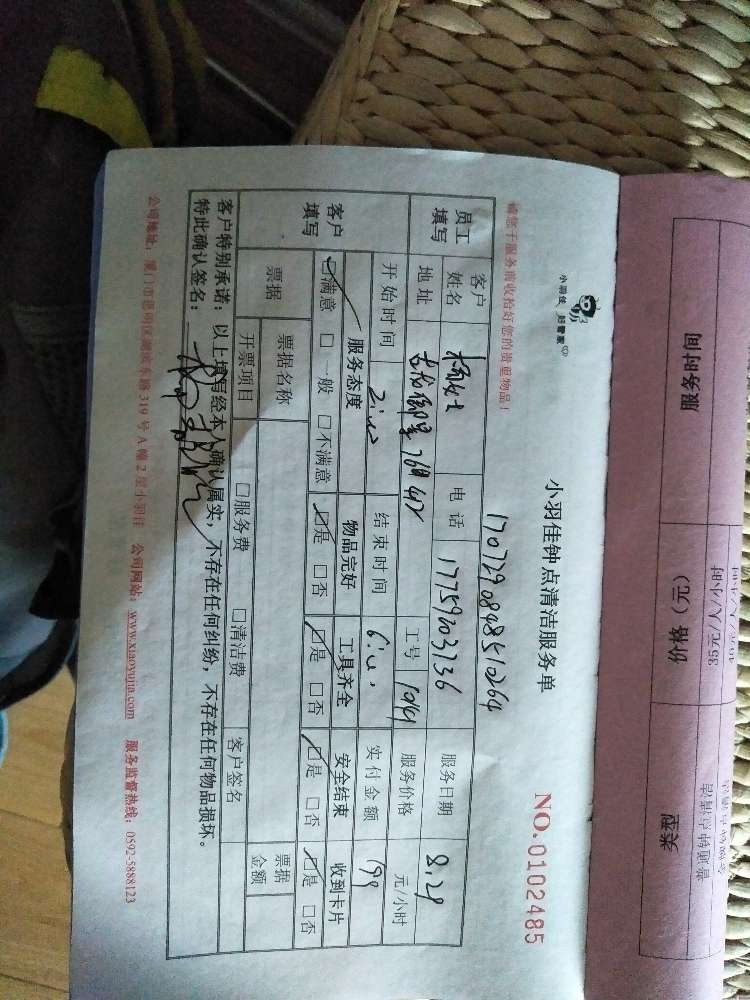 小羽佳 好管家
小羽佳钟点清洁服务单
NO.0102485
请您于服务前收拾好您的贵重物品!
员工填写
客户姓名
杨女士
电话
17759203736
服务日期
8.29
地址
工号
服务价格
元/小时
开始时间
2:00
结束时间
实付金额
199
客户填写
服务态度
物品完好
工具齐全
安全结束
收到卡片
☑满意 □一般 □不满意
☑是 □否
☑是 □否
☑是 □否
☑是 □否
票据
票据名称
票据金额
开票项目
□服务费 □清洁费
客户签名
客户特别承诺:以上填写经本人确认属实,不存在任何纠纷,不存在任何物品损坏。
特此确认签名:
公司地址:厦门市思明区湖滨东路 319 号 A 幢 2 层小羽佳 公司网站:www.xiaoyujia.com 服务监督热线:0592-5888123
服务时间
价格(元)
类型